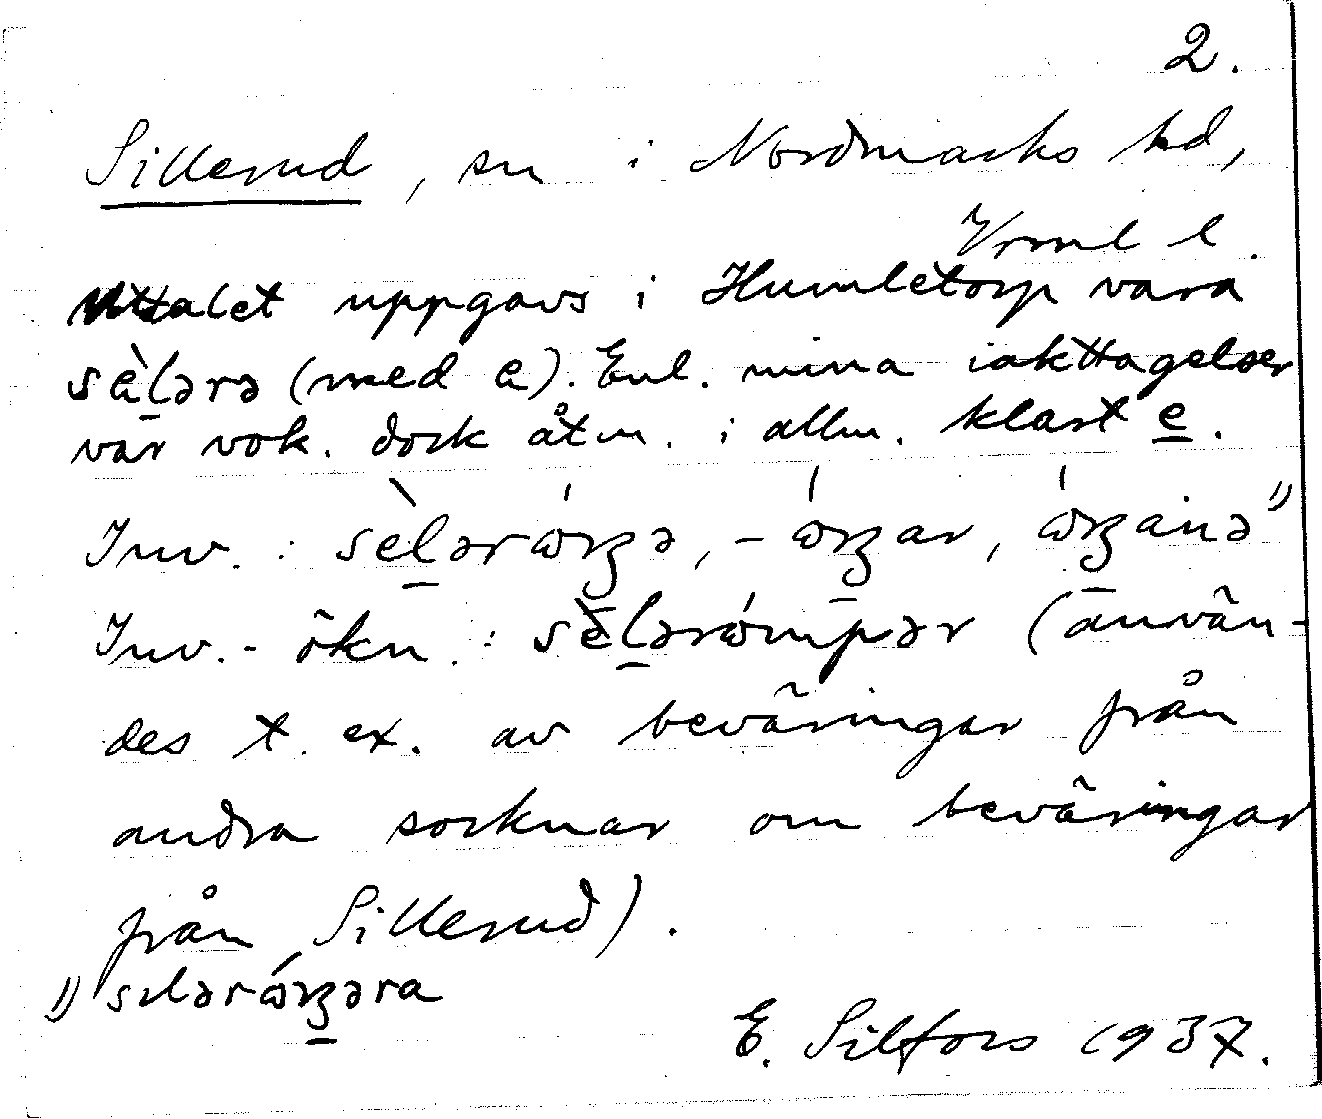 2.
Sillerud, sn i Nordmarks hd,
Vrml l.
Uttalet uppgavs i Humletorp vara
sèl̠ərə (med e). Enl. mina iakttagelser
var vok. dock åtm. i allm. klart e.
Inv. : sèl̠ərɷ́rʒə, -ɷ́rʒar, ɷ́rʒanə ¹⁾
Inv.-ökn. : sèl̠ərɷ́mpər (använ-
des t. ex. av beväringar från
andra socknar om beväringar
från Sillerud).
¹⁾ sılərɷ́rʒəra
E. Silfors 1937.